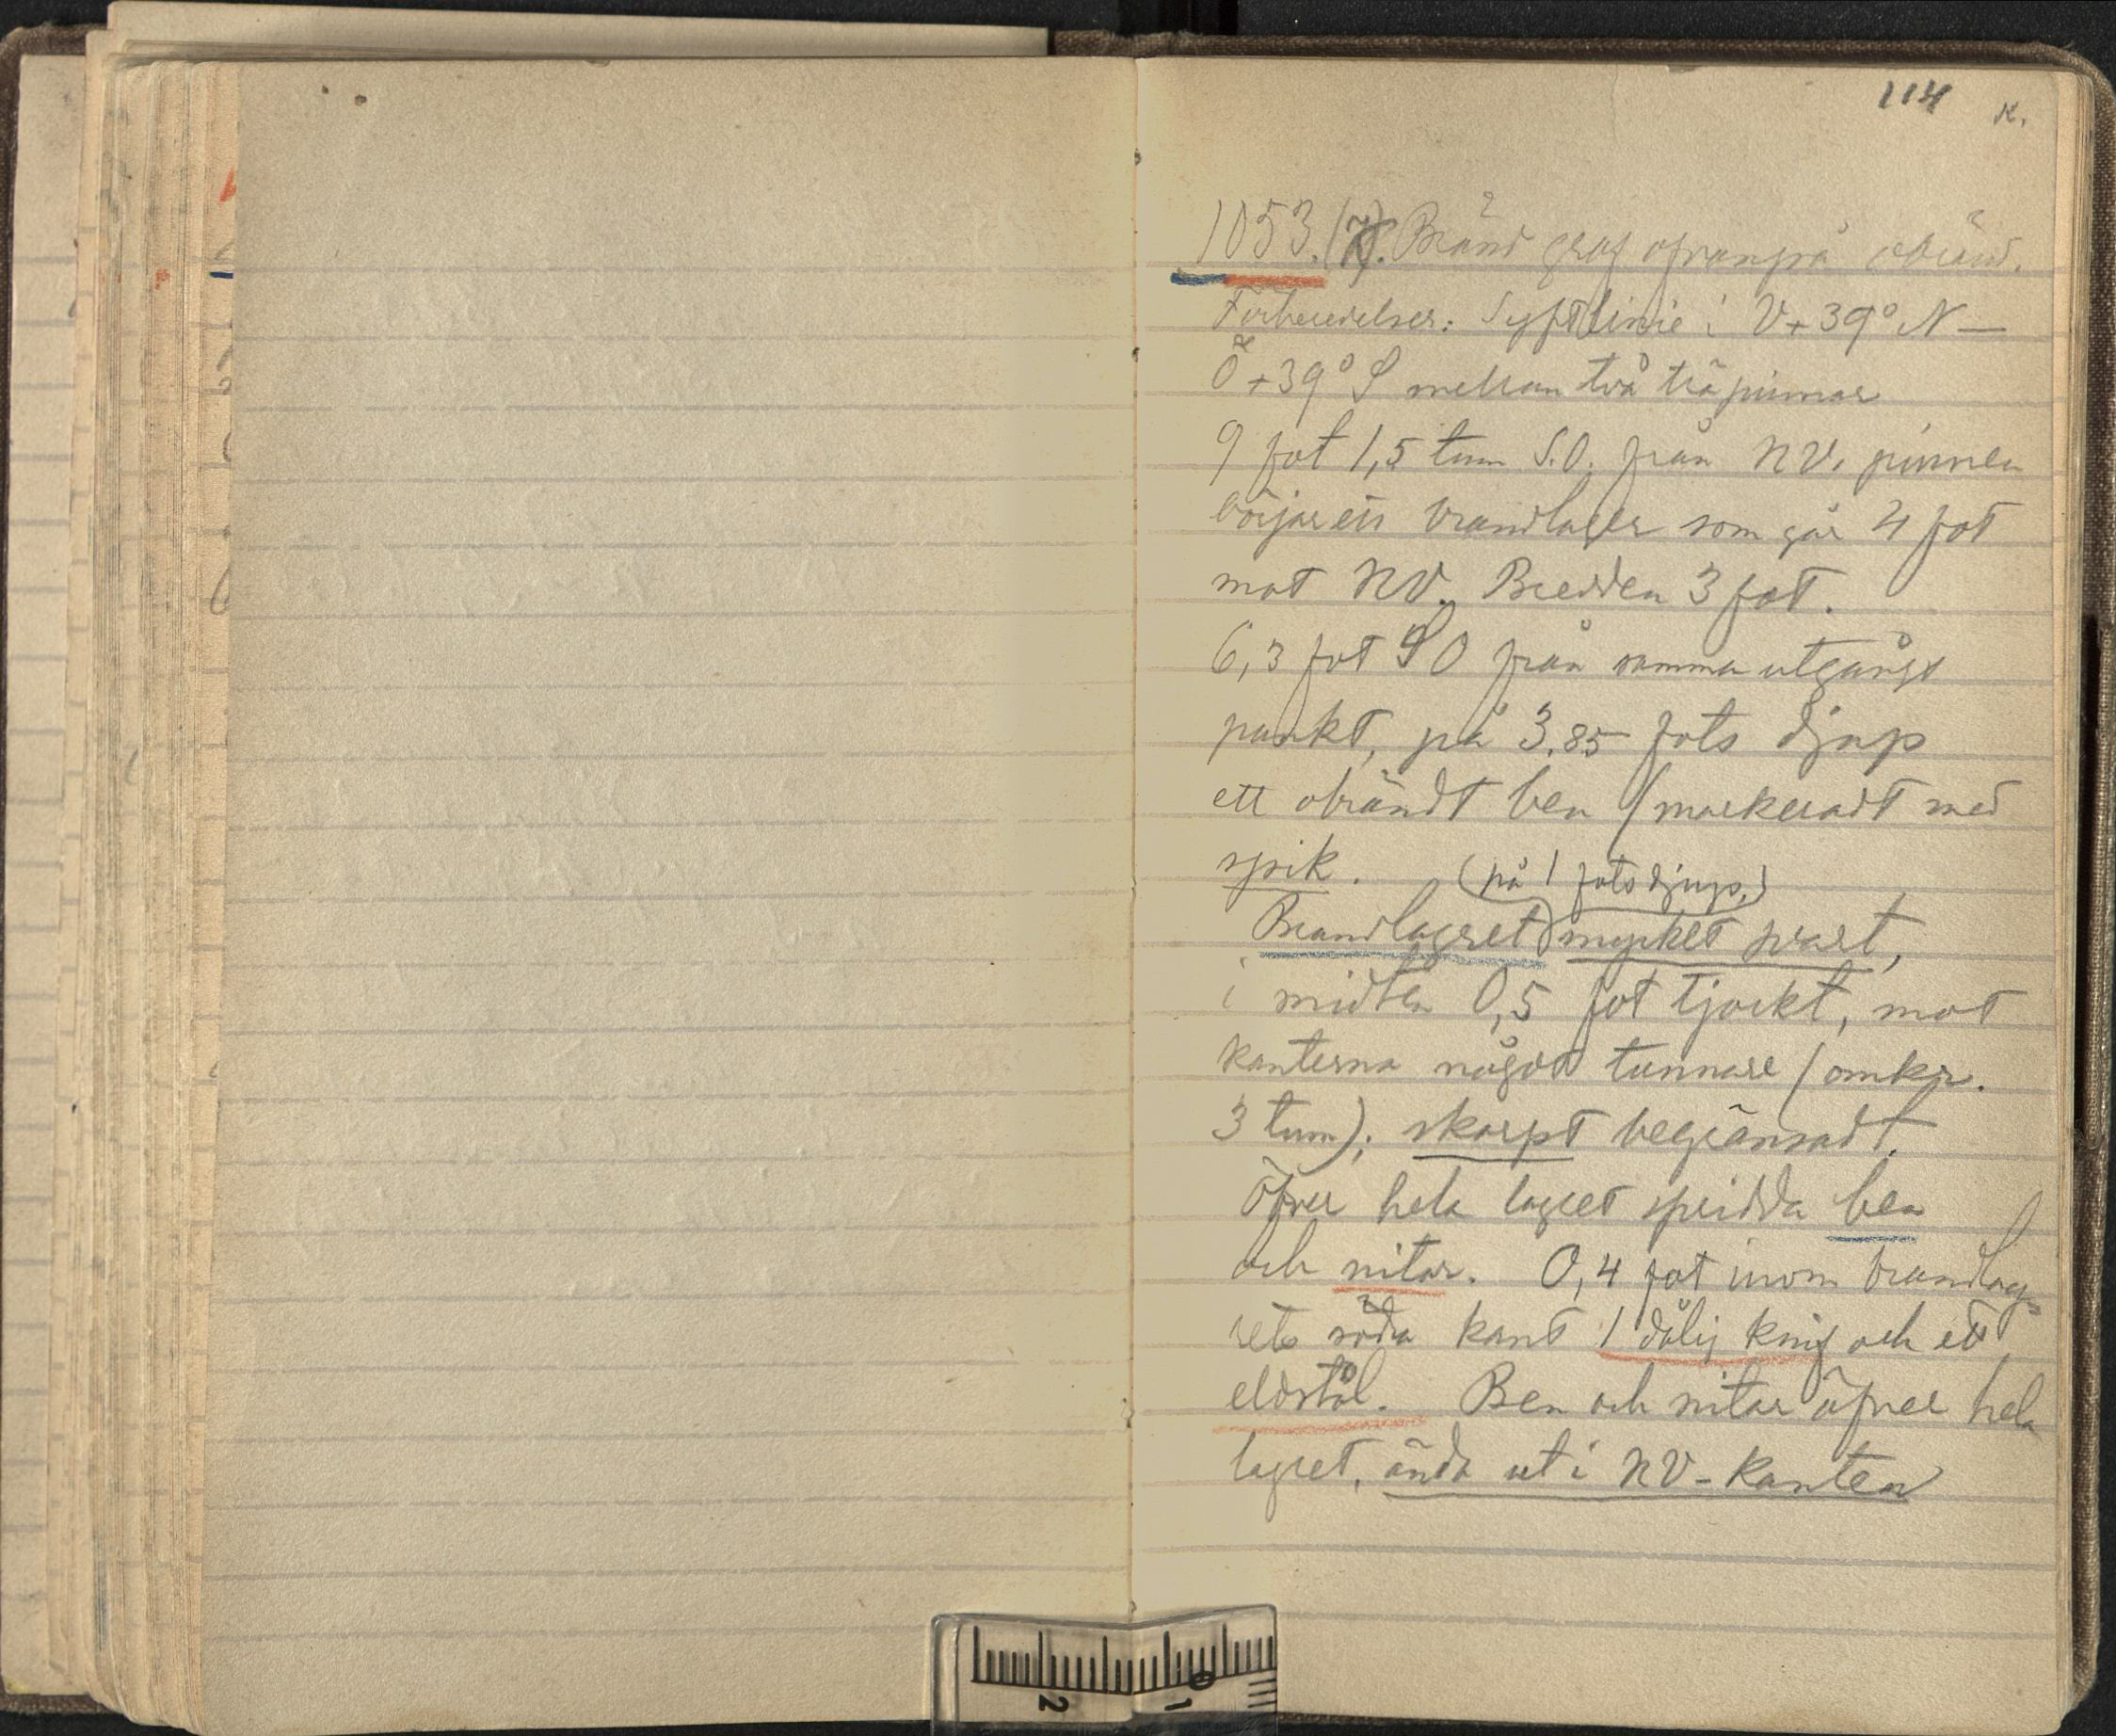 114 K.
1053. (7). Bränd graf ofvanpå obränd.
Förberedelser: Syftlinie i V+39° N —
Ö+39° S mellan två träpinnar
9 fot 1,5 tum S.O. från NV. pinnen
börjar ett brandlager som går 4 fot
mot NV. Bredden 3 fot.
6,3 fot SO från samma utgångs
punkt, på 3,85 fots djup
ett obrändt ben (markeradt med
spik.
(på 1 fots djup.)
Brandlagret mycket svart,
i midten 0,5 fot tjockt, mot
kanterna något tunnare (omkr.
3 tum); skarpt begränsadt.
Öfver hela lagret spridda ben
och nitar. 0,4 fot inom brandlag-
rets södra kant 1 dålig knif och ett
eldstål. Ben och nitar öfver hela
lagret, ända ut i NV-kanten
2 1 0